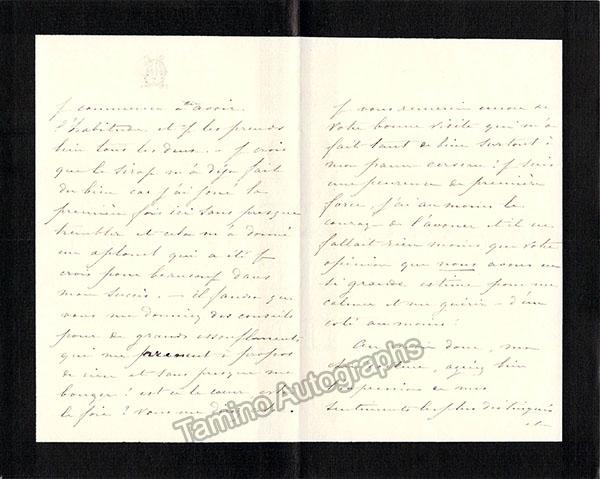 je commence à en avoir
l'habitude et je les prends
bien tous les deux. Je crois
que le sirop m'a déjà fait
du bien car j'ai joué la
première fois ici sans presque
trembler et cela m'a donné
un aplomb qui a été je
crois pour beaucoup dans
mon succès. — il faudra que
vous me donniez des conseils
pour de grands essoufflements
qui me prennent à propos
de rien et sans presque me
bouger! est-ce le cœur est-ce
le foie? Vous me direz
je vous remercie encore de
votre bonne visite qui m'a
fait tant de bien surtout à
mon pauvre cerveau; je suis
une peureuse de première
force, j'ai au moins le
courage de l'avouer et il ne
fallait rien moins que votre
opinion que nous avons en
si grande estime pour me
calmer et me guérir — d'un
côté au moins!
Au revoir donc, mon
agréez bien
l'expression de mes
sentiments les plus distingués
Tamino Autographs